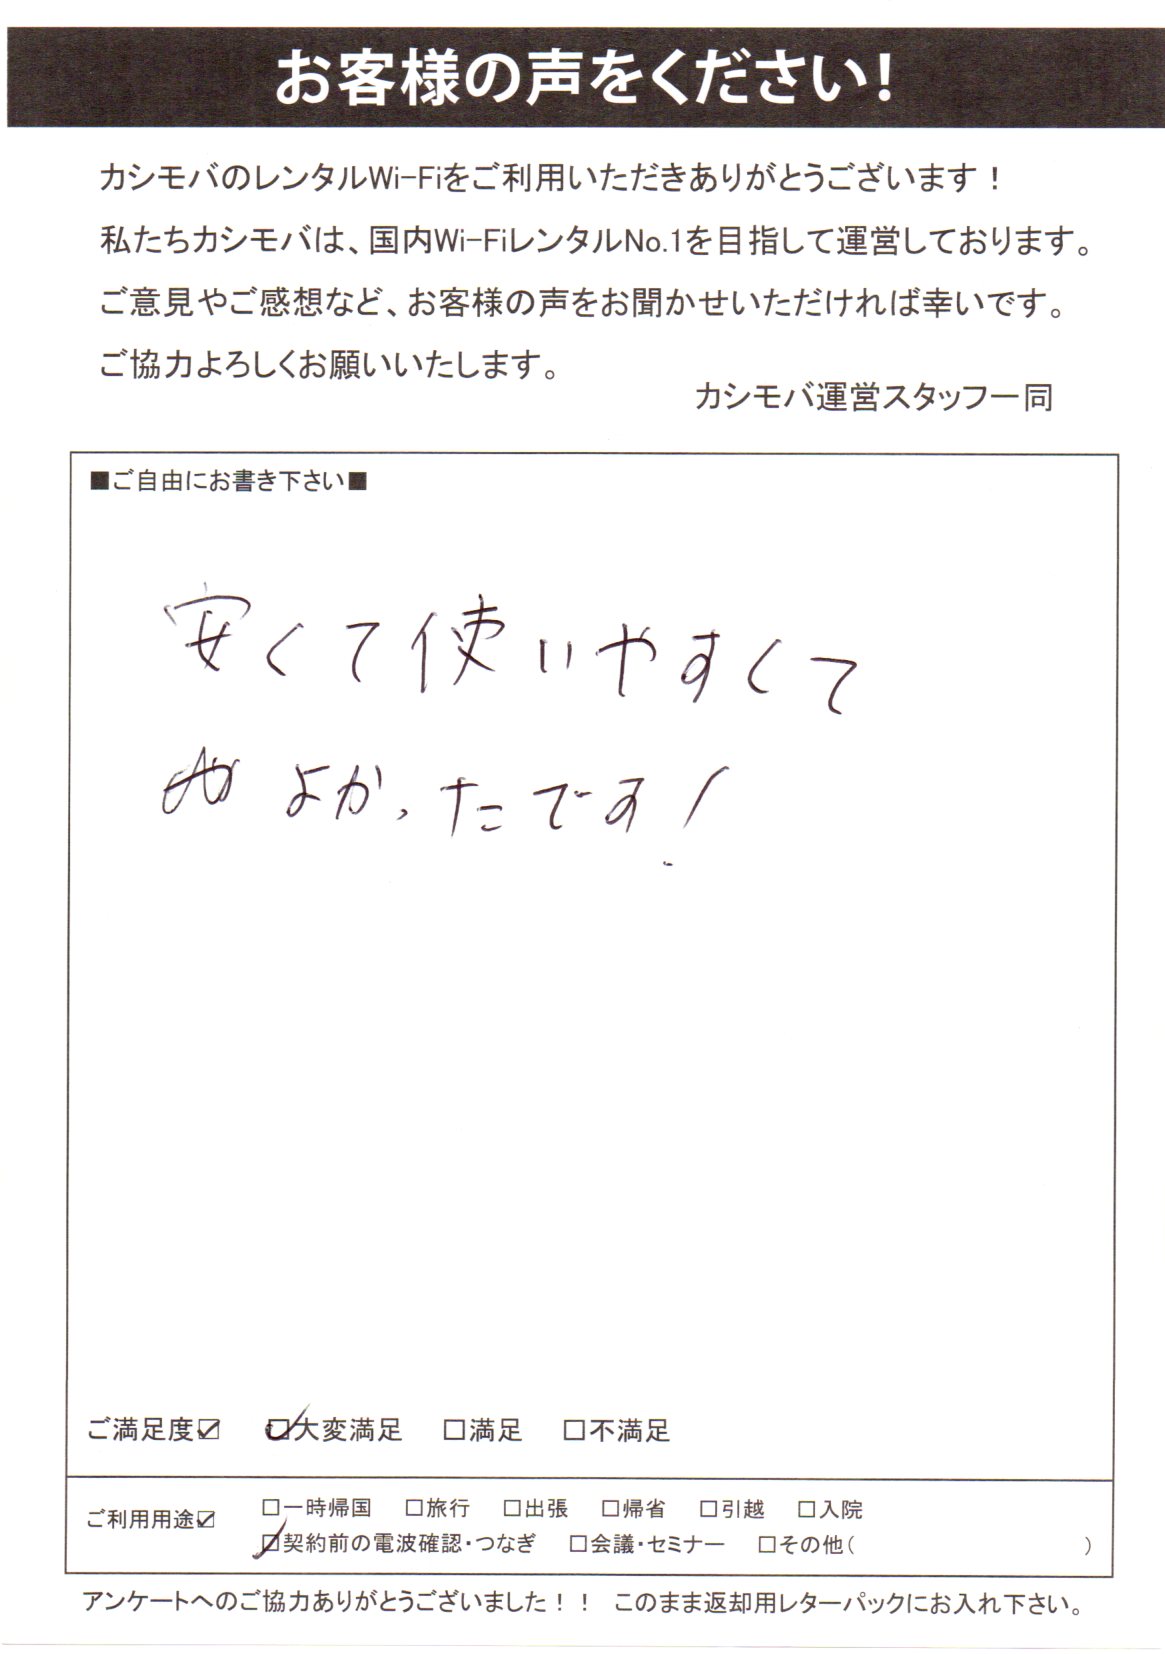 お客様の声をください!
カシモバのレンタルWi-Fiをご利用いただきありがとうございます！
私たちカシモバは、国内Wi-FiレンタルNo.1を目指して運営しております。
ご意見やご感想など、お客様の声をお聞かせいただければ幸いです。
ご協力よろしくお願いいたします。
カシモバ運営スタッフ一同
■ご自由にお書き下さい■
安くて使いやすくて
よかったです!
ご満足度☑ ☑大変満足 □満足 □不満足
ご利用用途☑ □一時帰国 □旅行 □出張 □帰省 □引越 □入院
☑契約前の電波確認・つなぎ □会議・セミナー □その他( )
アンケートへのご協力ありがとうございました！！ このまま返却用レターパックにお入れ下さい。